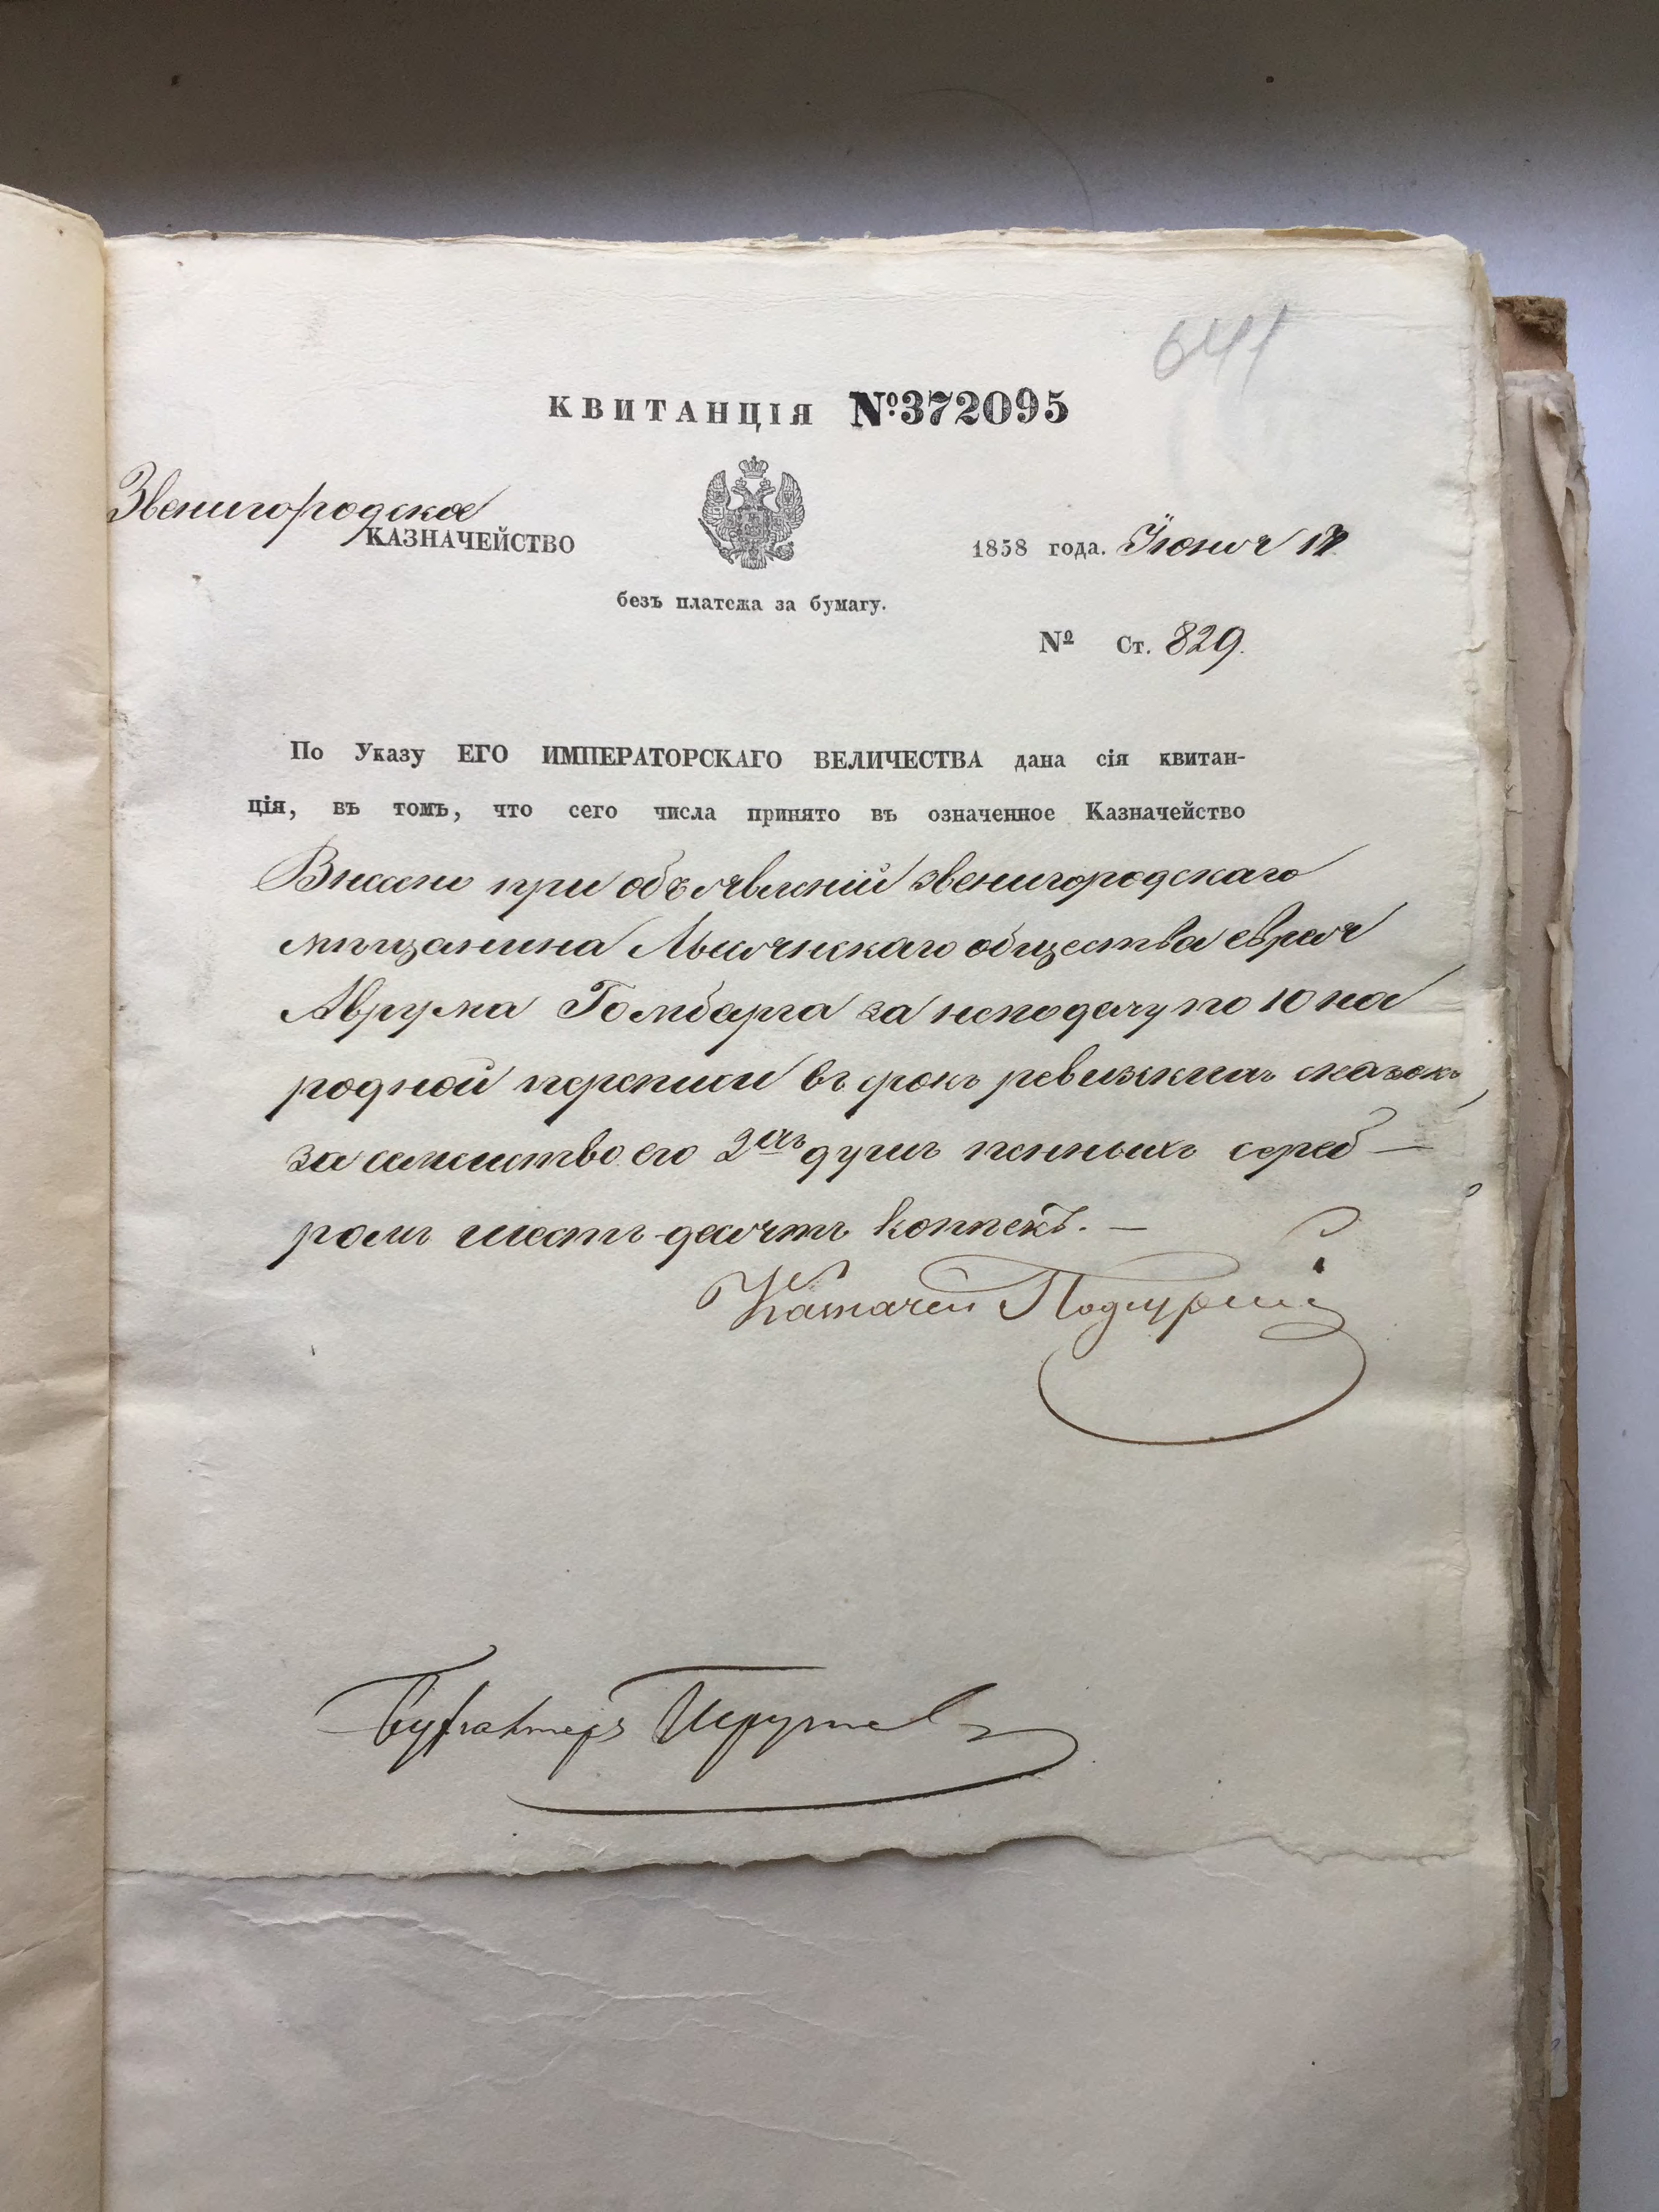 641
КВИТАНЦІЯ №372095
Звенигородское
КАЗНАЧЕЙСТВО
1858 года. Іюня 17
безъ платежа за бумагу.
№ Ст. 829.
По Указу ЕГО ИМПЕРАТОРСКАГО ВЕЛИЧЕСТВА дана сія квитан-
ція, въ томъ, что сего числа принято въ означенное Казначейство
Внесено при объявленіи звенигородскаго
мѣщанина Лысянскаго общества еврея
Аврума Гомберга за неподачу по 10 на
родной переписи въ срокъ ревизскихъ сказокъ
за семейство его 2хъ душъ пенныхъ сереб —
ромъ шесть десятъ копѣекъ. —
Казначей
Бухгалтеръ